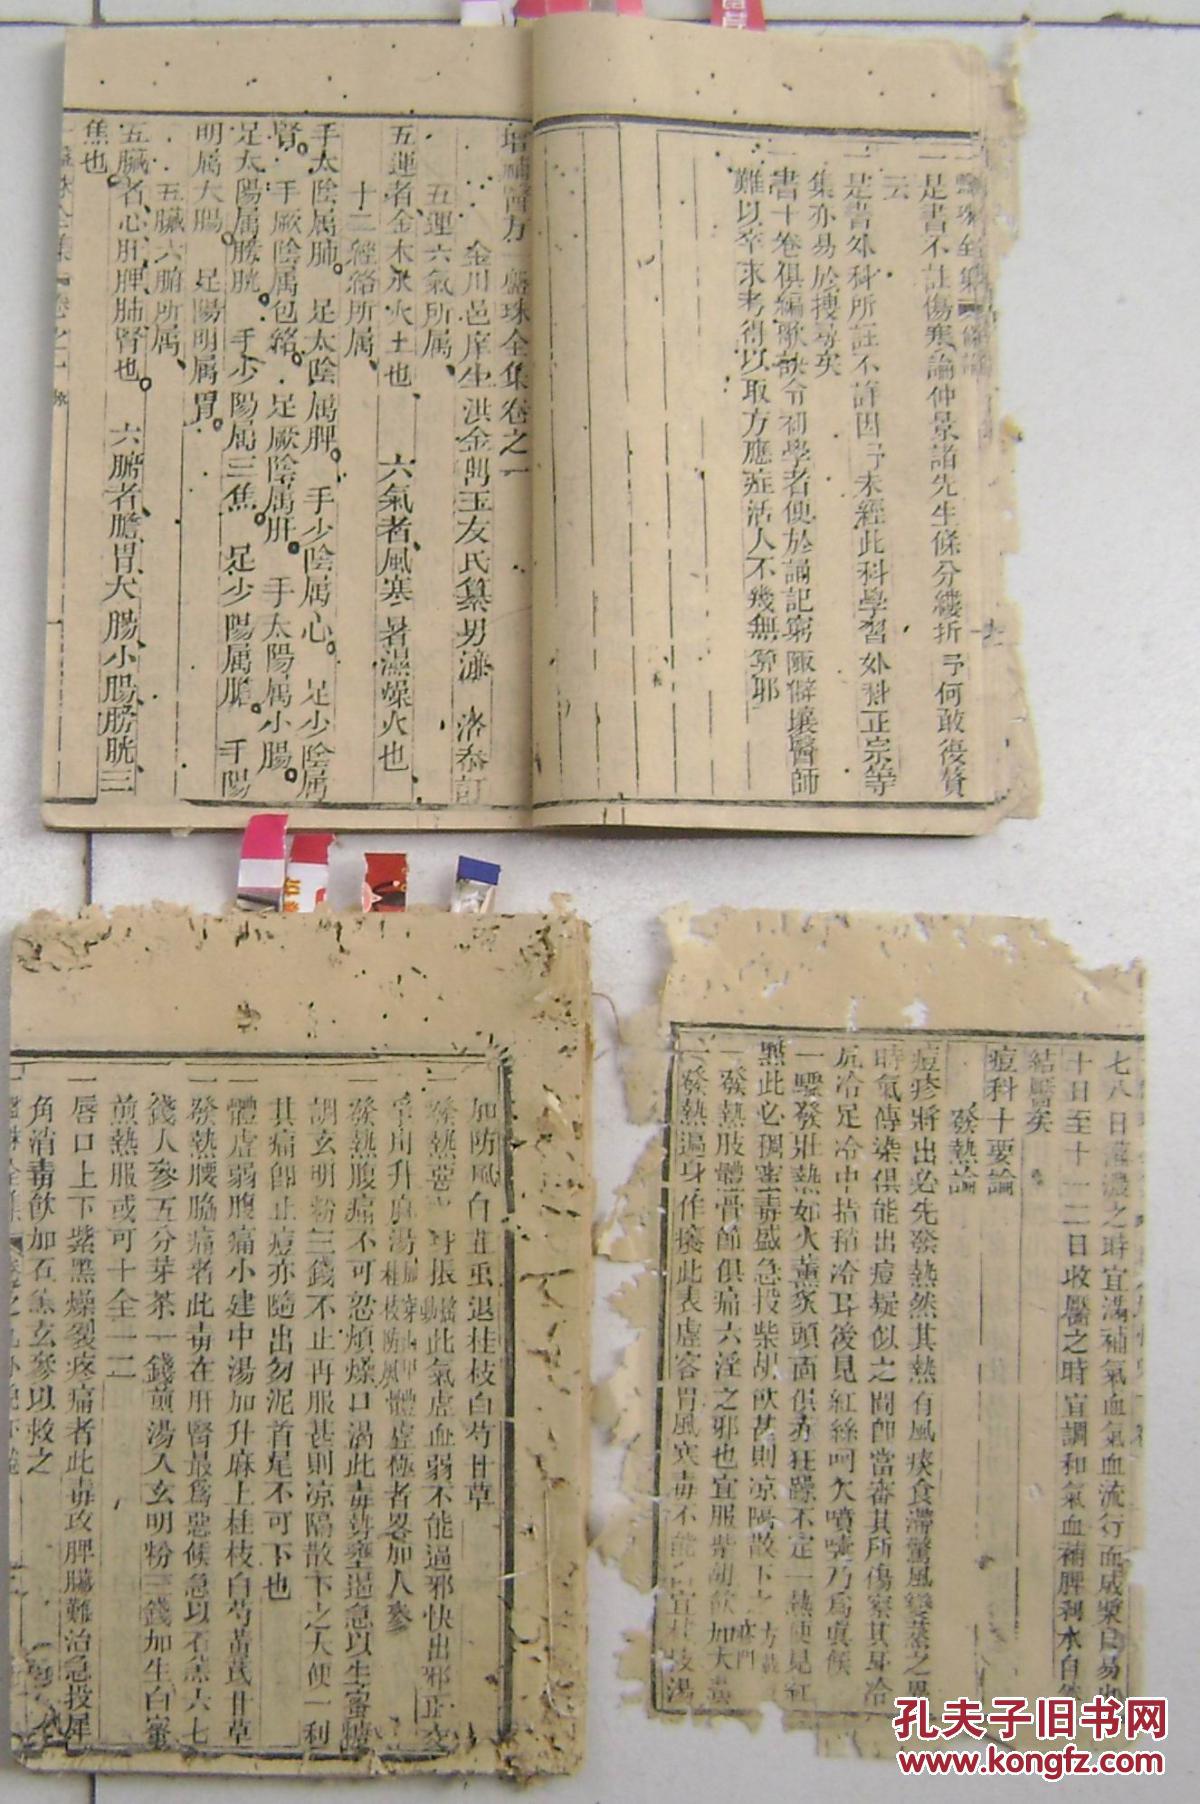 一是書不註傷寒論仲景諸先生條分縷折予何敢復贅
云
一是書外科所註不詳因予未經此科學習外科正宗等
集亦易於搜尋矣
一書十卷俱編歌訣令初學者便於誦記窮陬僻壤醫師
難以卒求考得以取方應症活人不幾無算耶
增補醫方一盤珠全集卷之一
金川邑庠生洪金鼎玉友氏纂男濂 洛叅訂
五運六氣所属
五運者金木水火土也 六氣者風寒暑濕燥火也
十二經絡所属
手太陰属肺 足太陰属脾 手少陰属心 足少陰属
腎 手厥陰属包絡 足厥陰属肝 手太陽属小腸
足太陽属膀胱 手少陽属三焦 足少陽属膽 手陽
明属大腸 足陽明属胃
五臟六腑所属
五臟者心肝脾肺腎也 六腑者膽胃大腸小腸膀胱三
焦也
七八日 濃之時宜滿補氣血氣血流行而成漿自易
十日至十一二日收靨之時宜調和氣血補脾利水自
結靨矣
痘科十要論
發熱論
痘疹將出必先發熱然其熱有風痰食滯驚風變蒸之異
時氣傳染俱能出痘疑似之間卽當審其所傷察其耳冷
尻冷足冷中指稍冷耳後見紅絲呵欠噴嚏乃爲真候
一驟發壯熱如火薰炙頭面俱赤狂躁不定一熱便見紅
點此必稠蜜毒盛急投柴胡飲甚則凉隔散下之
一發熱肢體骨節俱痛六淫之邪也宜服柴胡飲加大黃
一發熱遍身作癢此表虛客胃風寒毒不能 宜桂枝湯
加防風白芷重退桂枝白芍甘草
一發熱惡 身振 此氣虛血弱不能逼邪快出邪正
宜用升麻湯 體虛極者畧加人參
一發熱腹痛不可忍煩燥口渴此毒勢壅遏急以生蜜
調玄明粉三錢不止再服甚則凉隔散下之大便一利
其痛卽止痘亦隨出勿泥首尾不可下也
一體虛弱腹痛小建中湯加升麻上桂枝白芍黃芪甘草
一發熱腰脇痛者此毒在肝腎最爲惡候急以石羔六七
錢人參五分芽茶一錢煎湯入玄明粉三錢加生白蜜
煎熱服或可十全一二
一唇口上下紫黑燥裂疼痛者此毒攻脾臟難治急投犀
角消毒飲加石羔玄參以救之
孔夫子旧书网
www.kongfz.com